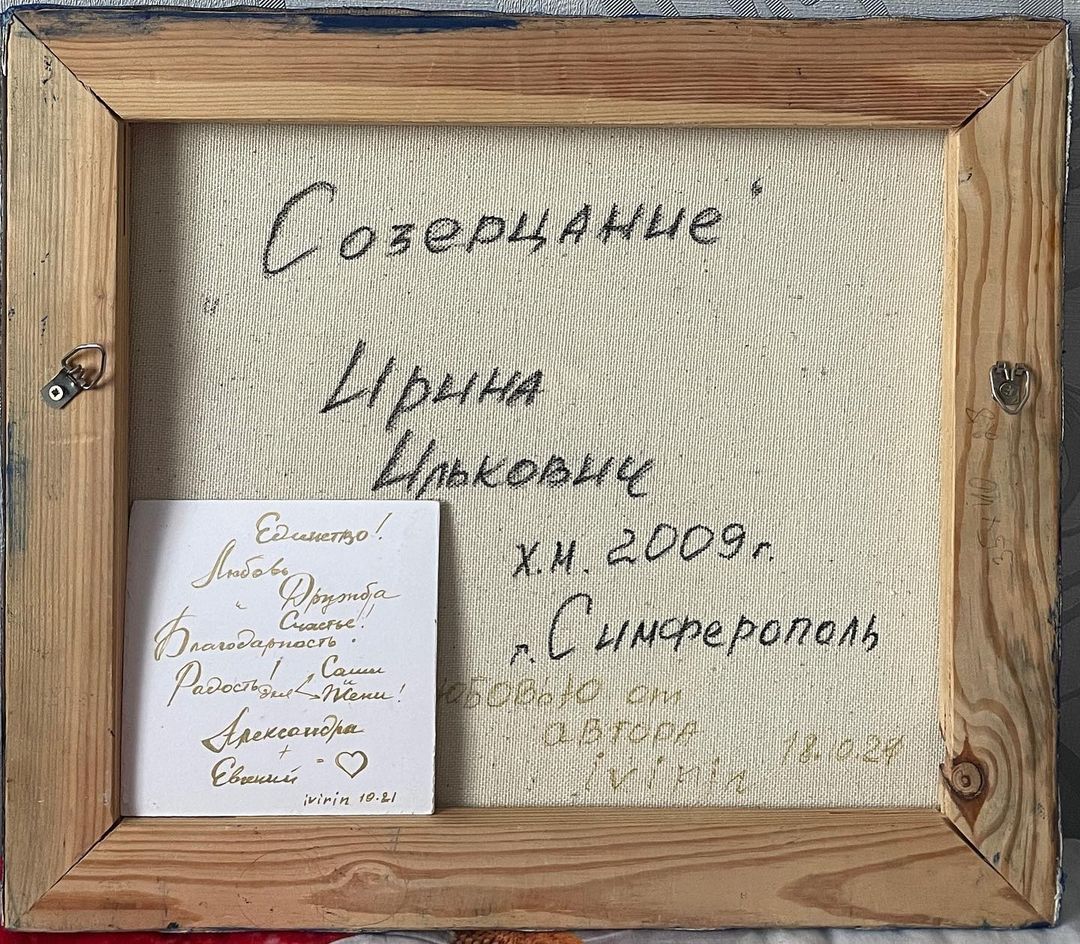 „Созерцание“
Ирина
Илькович
х.м. 2009г.
г. Симферополь
юбовью от
автора
ivirin
Единство!
Любовь
Дружба
Счастье!!
Благодарность
Радость! Саши
для и Жени!
Александра
+
Евгений = ♡
ivirin 10.21